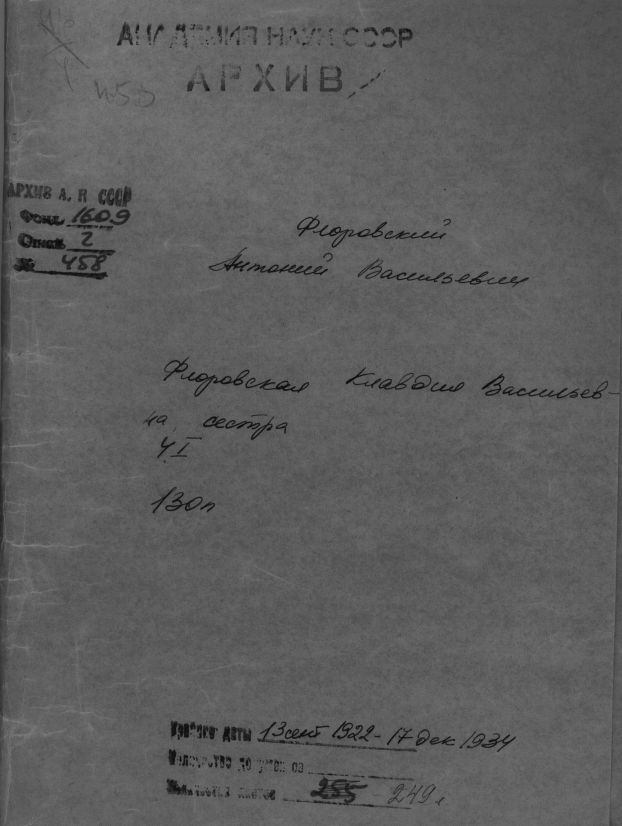 АКАДЕМИЯ НАУК СССР
АРХИВ
458
АРХИВ А. Н. СССР
Фонд 1609
Опись 2
№ 458
Флоровский
Антоний Васильевич
Флоровская Клавдия Васильев-
на, сестра
Ч I
130п
Крайние даты 13 сент 1922 - 17 дек 1934
Количество документов
Количество листов 255 249 л